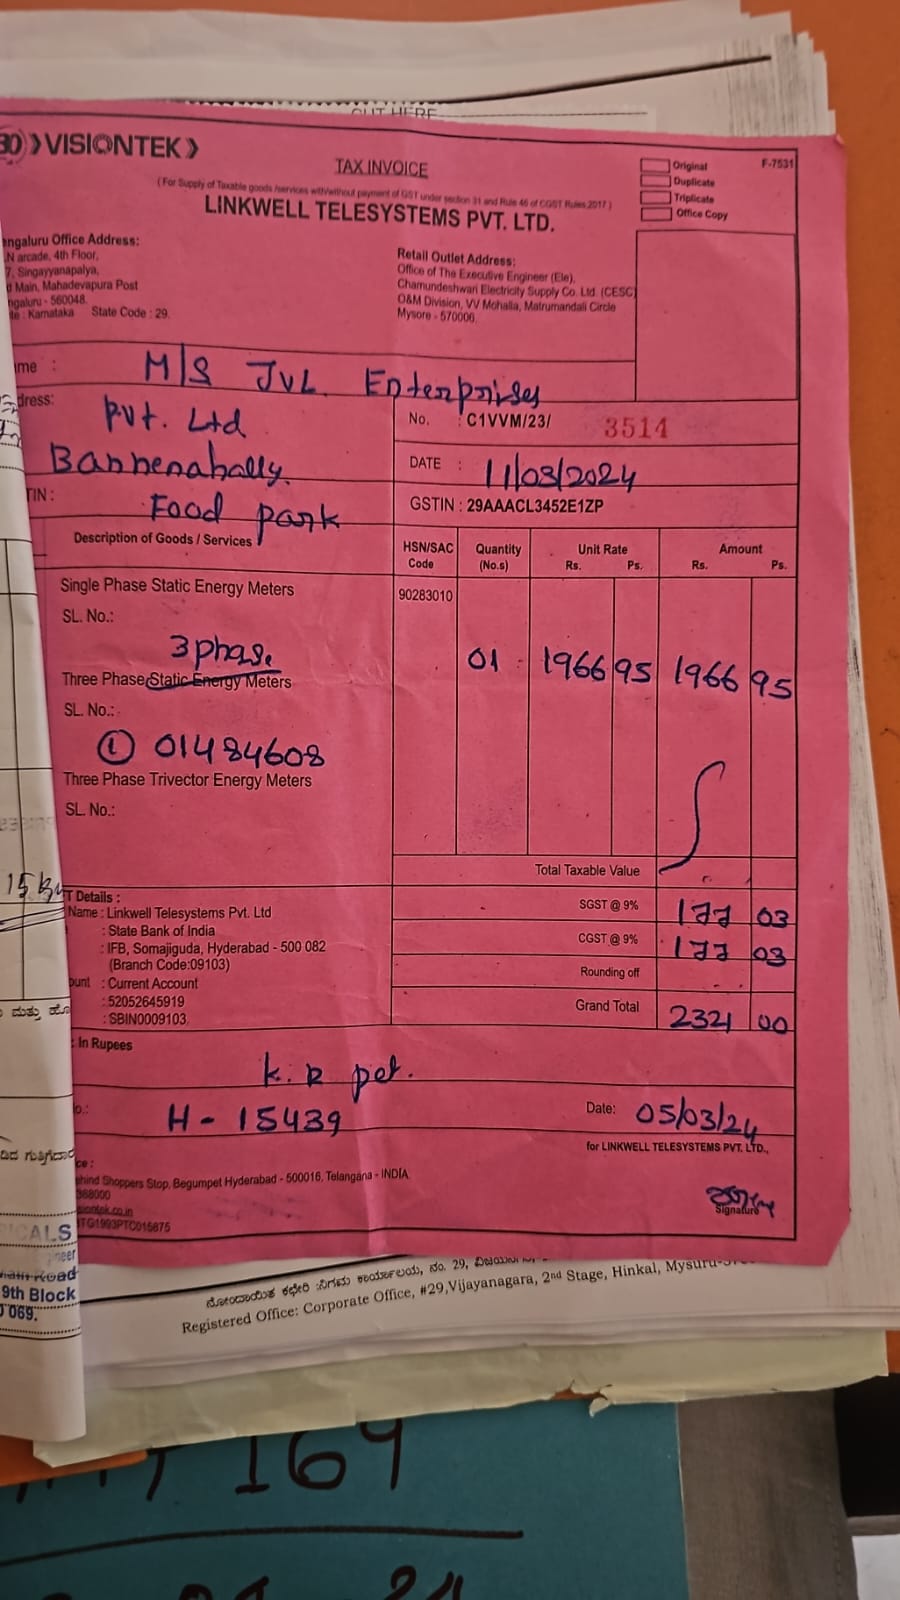 CUT HERE
VISIONTEK
TAX INVOICE
(For Supply of Taxable goods /services with/without payment of GST under section 31 and Rule 46 of CGST Rules 2017)
LINKWELL TELESYSTEMS PVT. LTD.
Original
Duplicate
Triplicate
Office Copy
F-7531
engaluru Office Address:
N arcade, 4th Floor,
7, Singayyanapalya,
d Main, Mahadevapura Post
ngaluru - 560048.
te : Karnataka State Code : 29.
Retail Outlet Address:
Office of The Executive Engineer (Ele),
Chamundeshwari Electricity Supply Co. Ltd. (CESC)
O&M Division, VV Mohalla, Matrumandali Circle
Mysore - 570006.
me : M/S JVL Enterprises
dress: Pvt. Ltd
Bannenahally.
TIN : Food park
No. : C1VVM/23/ 3514
DATE : 11/03/2024
GSTIN : 29AAACL3452E1ZP
Description of Goods / Services HSN/SAC Code Quantity (No.s) Unit Rate Rs. Ps. Amount Rs. Ps.
Single Phase Static Energy Meters 90283010
SL. No.:
3 phase 01 1966 95 1966 95
Three Phase Static Energy Meters
SL. No.:
① 01484608
Three Phase Trivector Energy Meters
SL. No.:
Total Taxable Value
15
T Details :
Name : Linkwell Telesystems Pvt. Ltd
: State Bank of India
: IFB, Somajiguda, Hyderabad - 500 082
(Branch Code:09103)
ount : Current Account
:52052645919
: SBIN0009103
SGST @ 9% 177 03
CGST @ 9% 177 03
Rounding off
Grand Total 2321 00
: In Rupees
K. R pet.
o.: H - 15439
Date: 05/03/24
for LINKWELL TELESYSTEMS PVT. LTD.,
Signature
ce :
ehind Shoppers Stop, Begumpet Hyderabad - 500016, Telangana - INDIA
368000
siontek.co.in
TG1993PTC015875
ಮತ್ತು
CALS
neer
Road
9th Block
069.
ನೋಂದಾಯಿತ ಕಛೇರಿ :ನಿಗಮ ಕಾರ್ಯಾಲಯ, ನಂ. 29,
Registered Office: Corporate Office, #29,Vijayanagara, 2nd Stage, Hinkal, Mysuru-
169
24